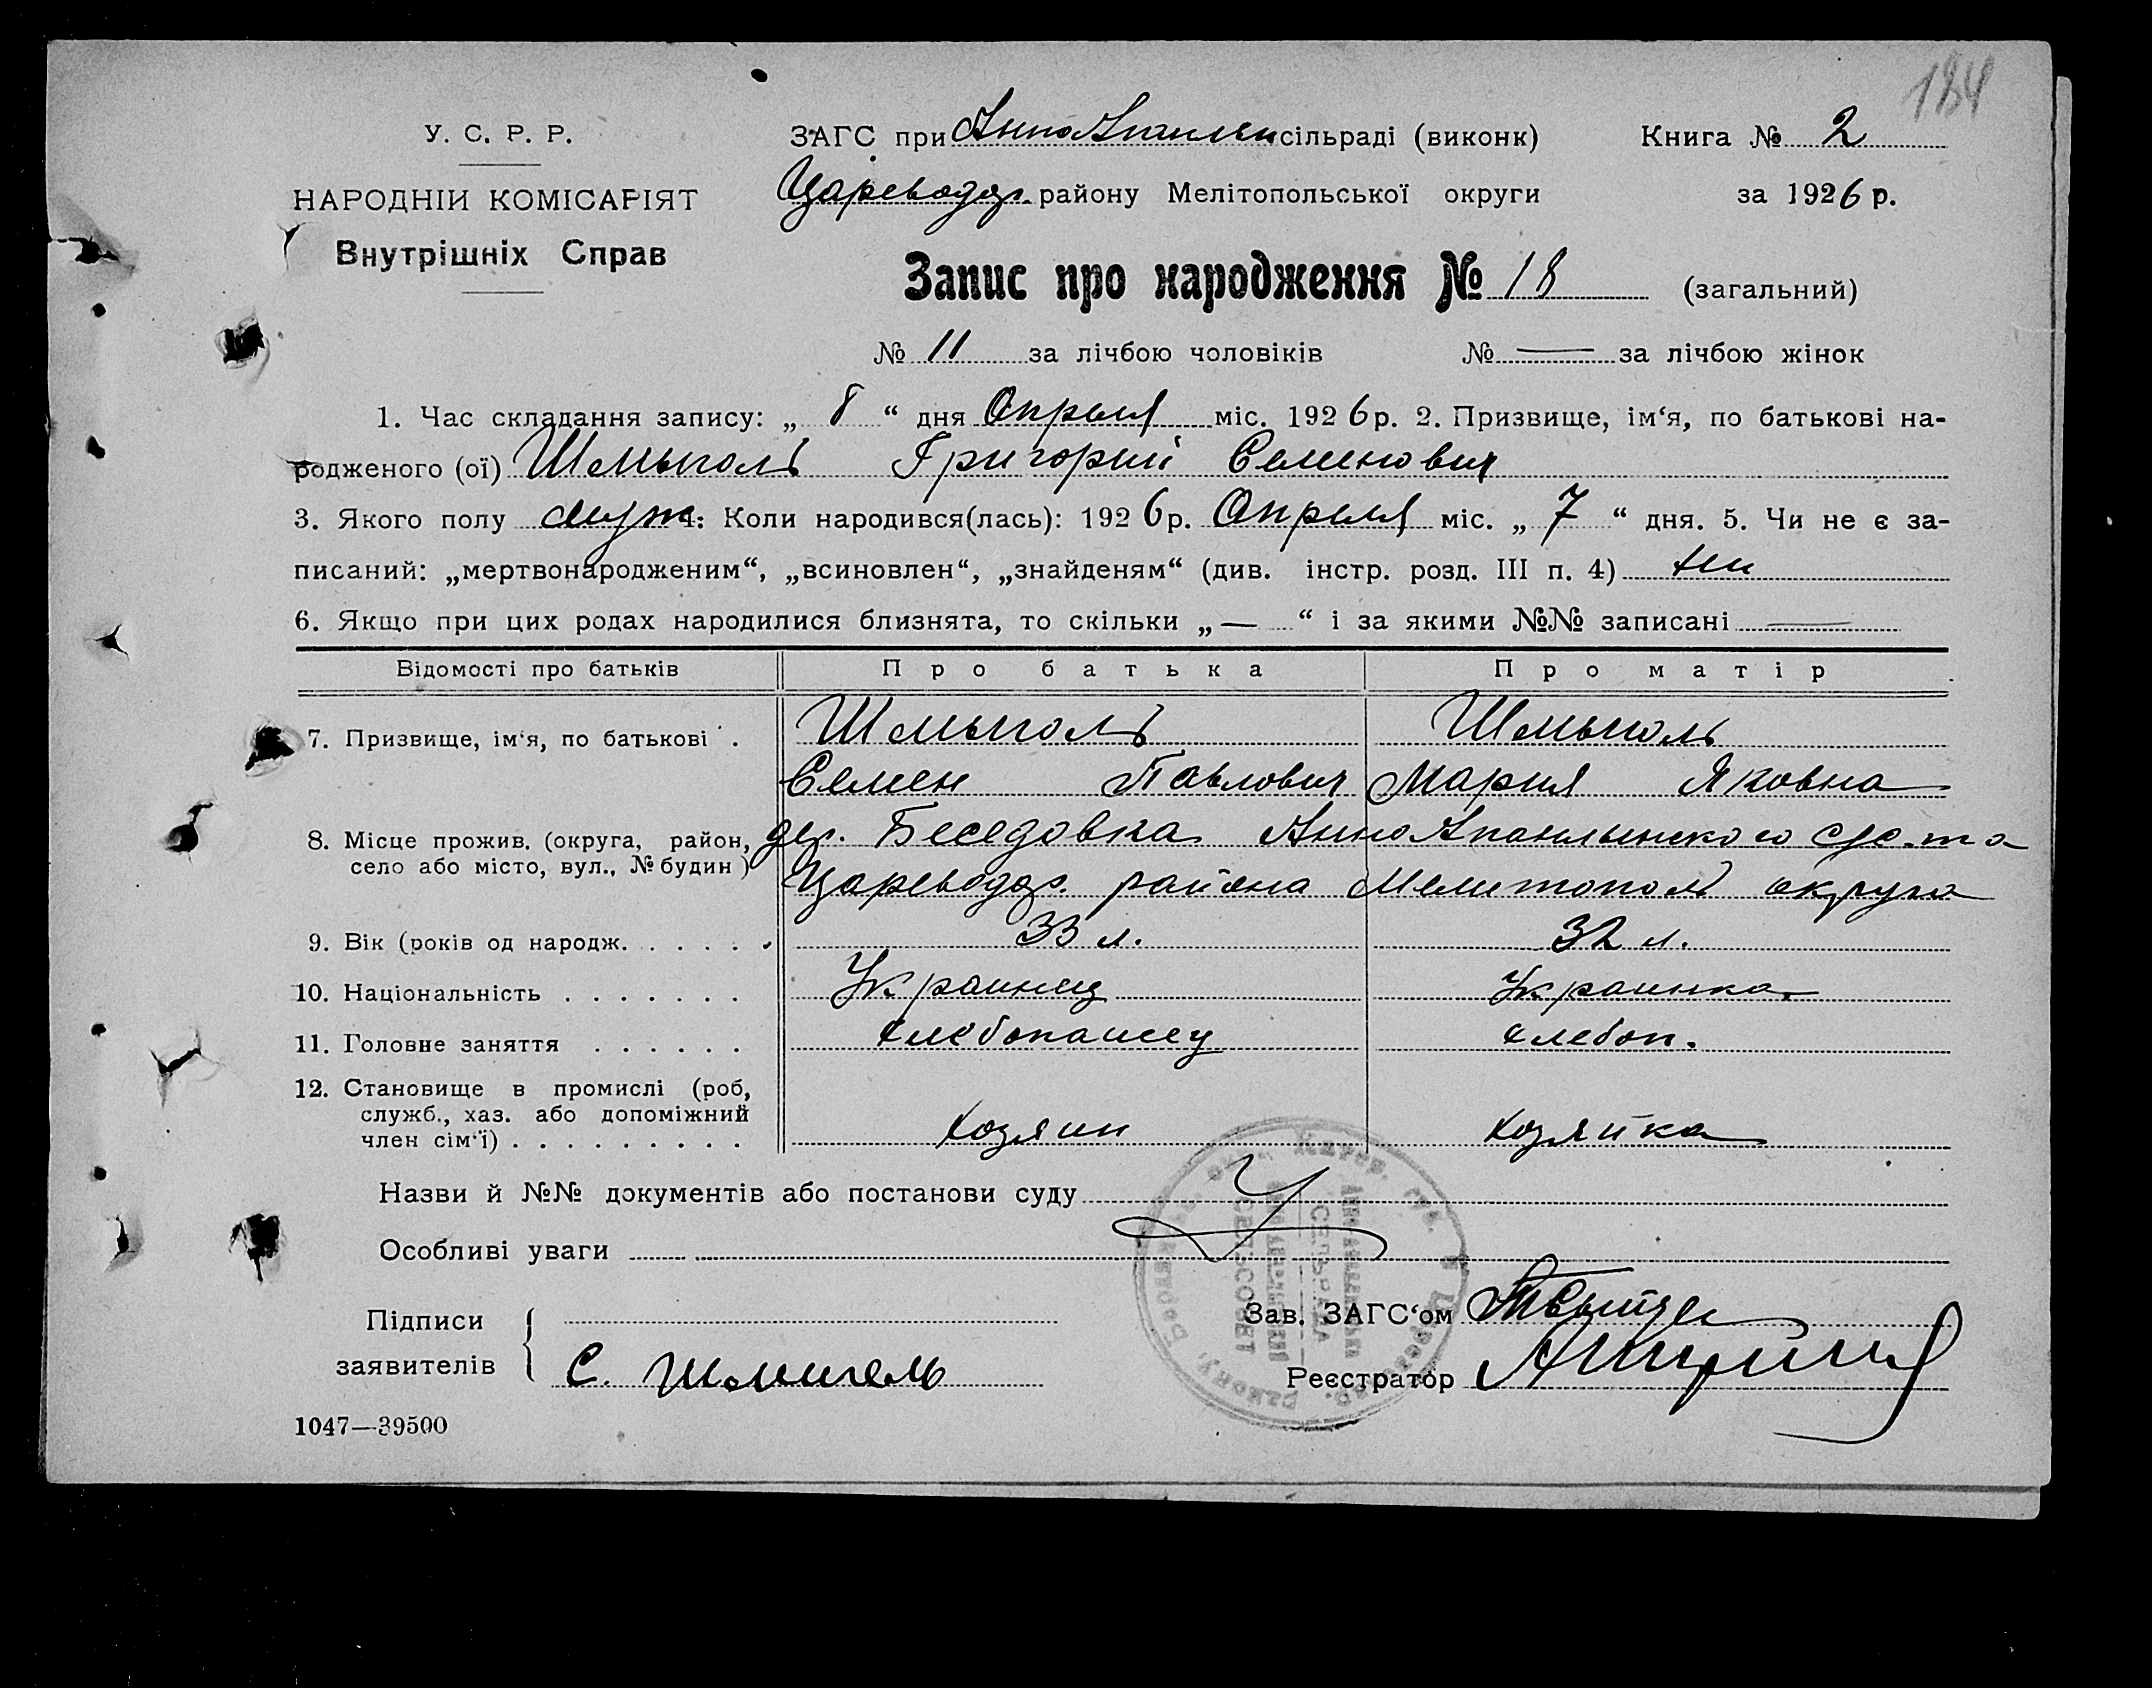 184
У. С. Р. Р.
НАРОДНІЙ КОМІСАРІЯТ
Внутрішніх Справ
ЗАГС при Анно Апанлин сільраді (виконк) Книга № 2
Царевода. району Мелітопольської округи за 1926 р.
Запис про народження № 18 (загальний)
№ 11 за лічбою чоловіків № — за лічбою жінок
1. Час складання запису: „ 8 “ дня Апреля міс. 1926 р. 2. Призвище, ім‘я, по батькові на-
родженого (ої) Шмыголь Григорий Семенович
3. Якого полу муж 4: Коли народився(лась): 1926 р. Апреля міс. „ 7 “ дня. 5. Чи не є за-
писаний: „мертвонародженим“, „всиновлен“, „знайденям“ (див. інстр. розд. III п. 4) ни
6. Якщо при цих родах народилися близнята, то скільки „ — “ і за якими №№ записані —
Відомості про батьків Про батька Про матір
7. Призвище, ім‘я, по батькові . Шмыголь Шмыголь
Семен Павлович Мария Яковна
8. Місце прожив. (округа, район, дер. Беседовка Анно
село або місто, вул., № будин ) района Мелитопол округа
9. Вік (років од народж. . . . . . 33 л. 32 л.
10. Національність . . . . . . . Украинец Украинка
11. Головне заняття . . . . . . хлебопашец хлебоп.
12. Становище в промислі (роб,
служб., хаз. або допоміжний
член сім‘ї) . . . . . . . . . хозяин хозяйка
Назви й №№ документів або постанови суду
Особливі уваги
Підписи
заявителів С. Шмиголь
Зав. ЗАГС‘ом
Реєстратор
1047—39500